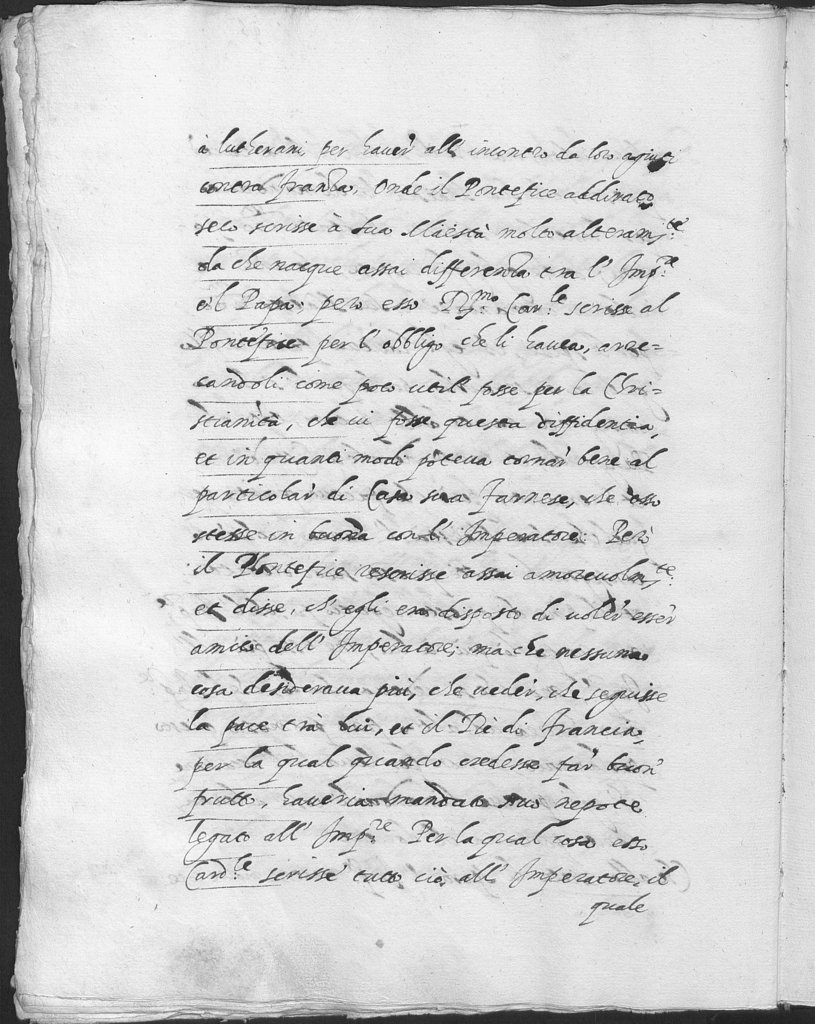 à lutherani, per haver all' incontro da loro agiuti
contra Francia. Onde il Pontefice adirato
seco scrisse à Sua Maestà molto alteram.te
da che nacque assai differentia tra l' Imp.re
e 'l Papa; però esso Ill.mo Car.le scrisse al
Pontefice per l' obbligo che li havea, arre=
candoli come poco util fosse per la Chri=
stianità, che vi fosse questa diffidentia,
et in quanti modi poteva tornar bene al
particolar di Casa sua Farnese, che esso
stesse in buona con l' Imperatore. Però
il Pontefice rescrisse assai amorevolm.te
et disse, ch' egli era disposto di voler esser
amico dell' Imperatore; ma che nessuna
cosa desiderava più, che veder, che seguisse
la pace trà lui, et il Rè di Francia,
per la qual quando credesse far buon
frutto, haveria mandato suo nepote
legato all' Imp.re Per la qual cosa esso
Card.le scrisse tutto ciò all' Imperatore, il
quale